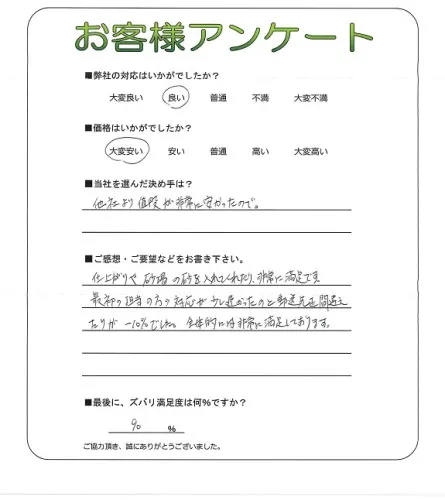 お客様アンケート
■弊社の対応はいかがでしたか？
大変良い 良い 普通 不満 大変不満
■価格はいかがでしたか？
大変安い 安い 普通 高い 大変高い
■当社を選んだ決め手は？
他社より値段が非常に安かったので。
■ご感想・ご要望などをお書き下さい。
仕上がりや砂場の砂を入れてくれたり、非常に満足です。
最初の担当の方の対応が少し遅かったのと郵送先を間違え
たりが -10%でした。全体的には非常に満足しております。
■最後に、ズバリ満足度は何％ですか？
90 %
ご協力頂き、誠にありがとうございました。